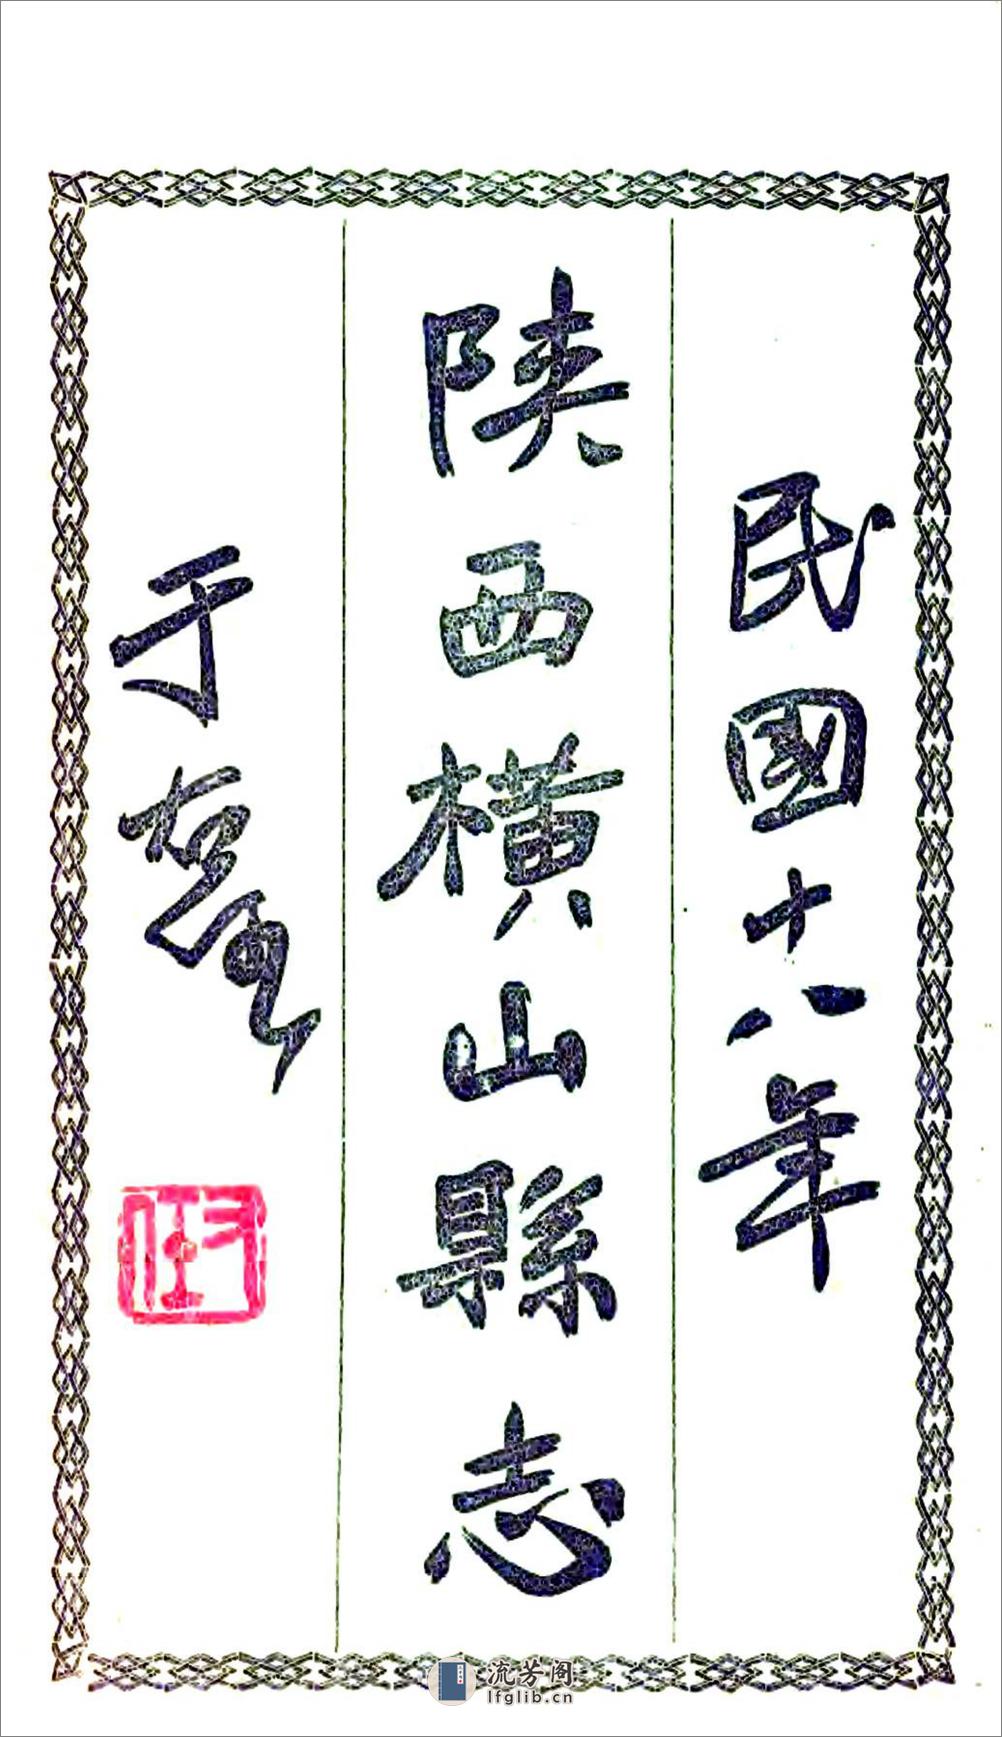 民國十八年
陝西橫山縣志
于右任
右任
流芳阁
lfglib.cn